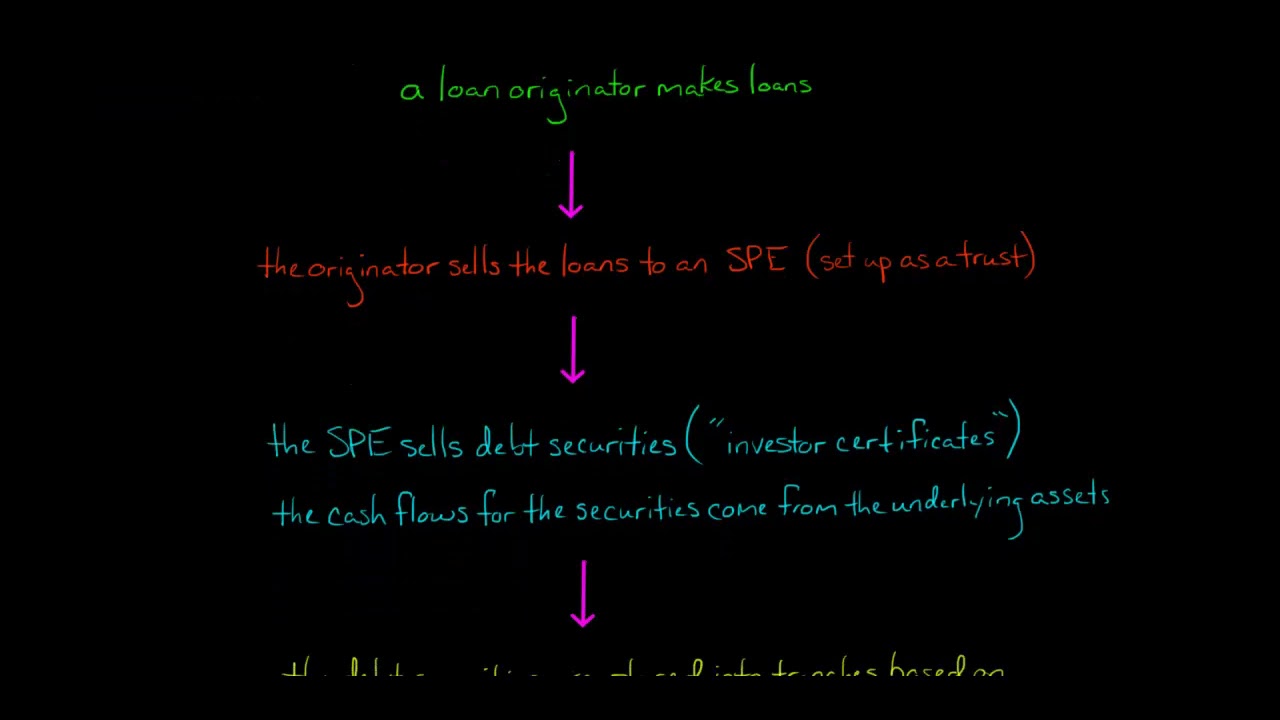 a loan originator makes loans
the originator sells the loans to an SPE (set up as a trust)
the SPE sells debt securities ("investor certificates")
the cash flows for the securities come from the underlying assets
the debt securities are into tranches based on